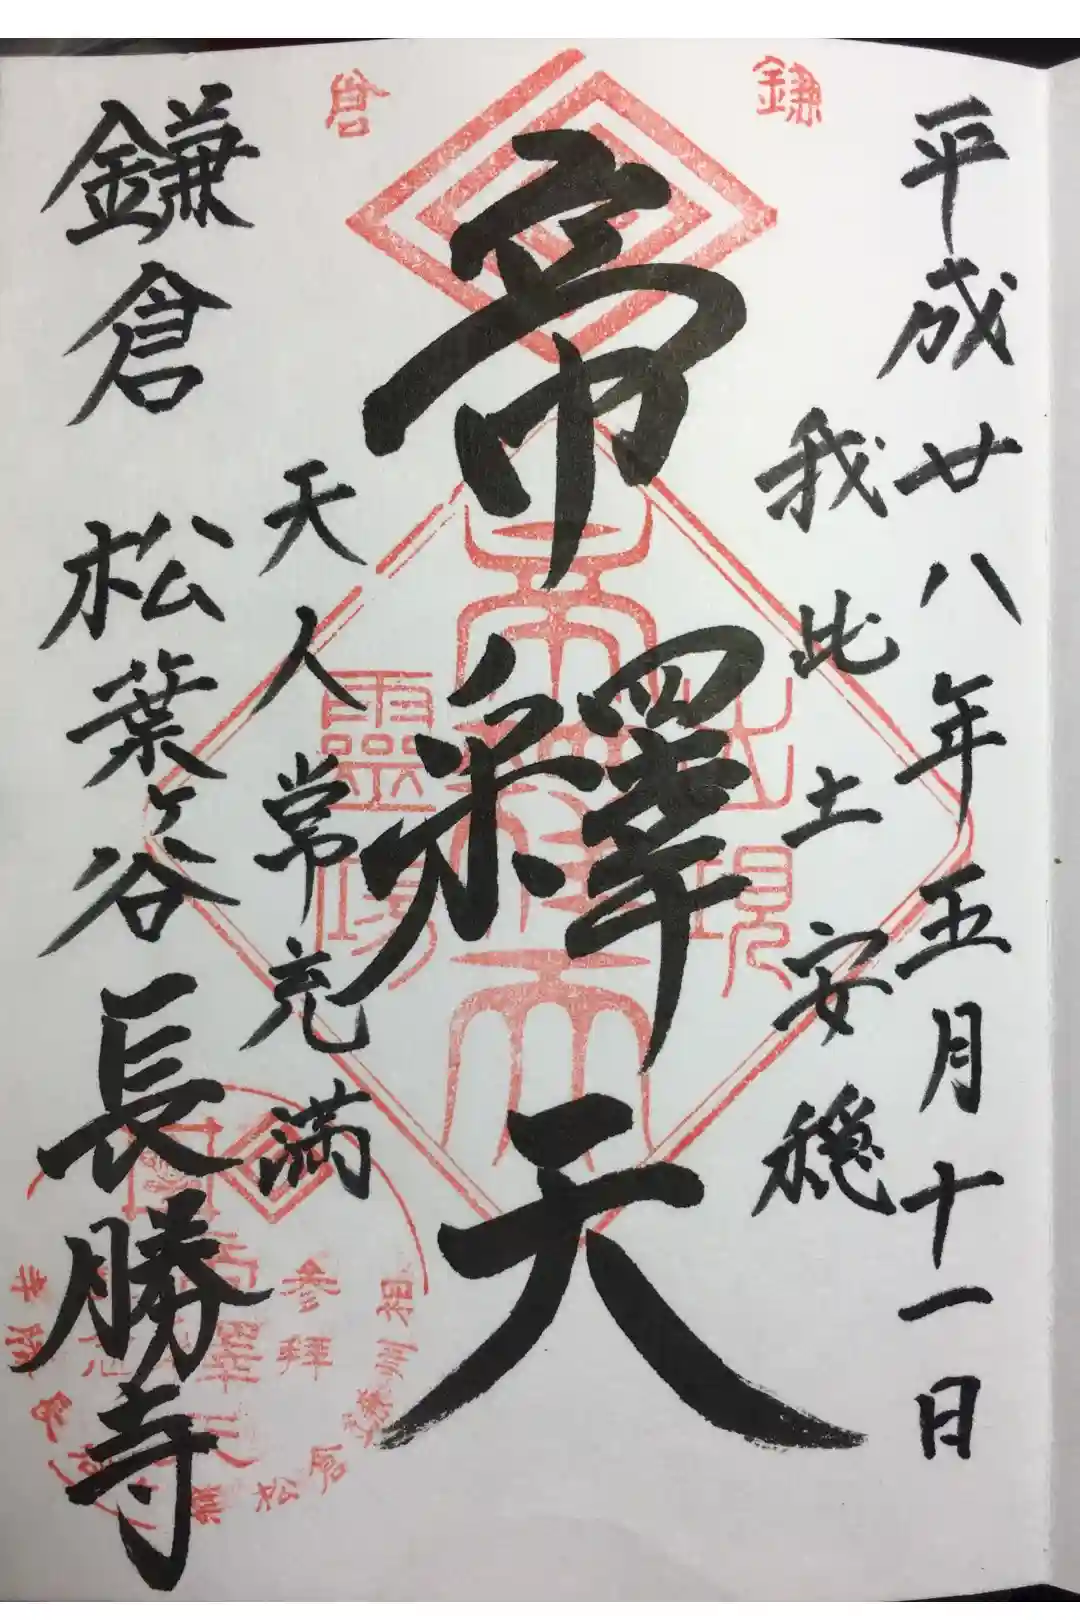 平成廿八年五月十一日
我此土安穏
鎌倉
帝釋天
出現
帝釋天
靈場
天人常充満
鎌倉 松葉ヶ谷 長勝寺
参拝
相州鎌倉松葉